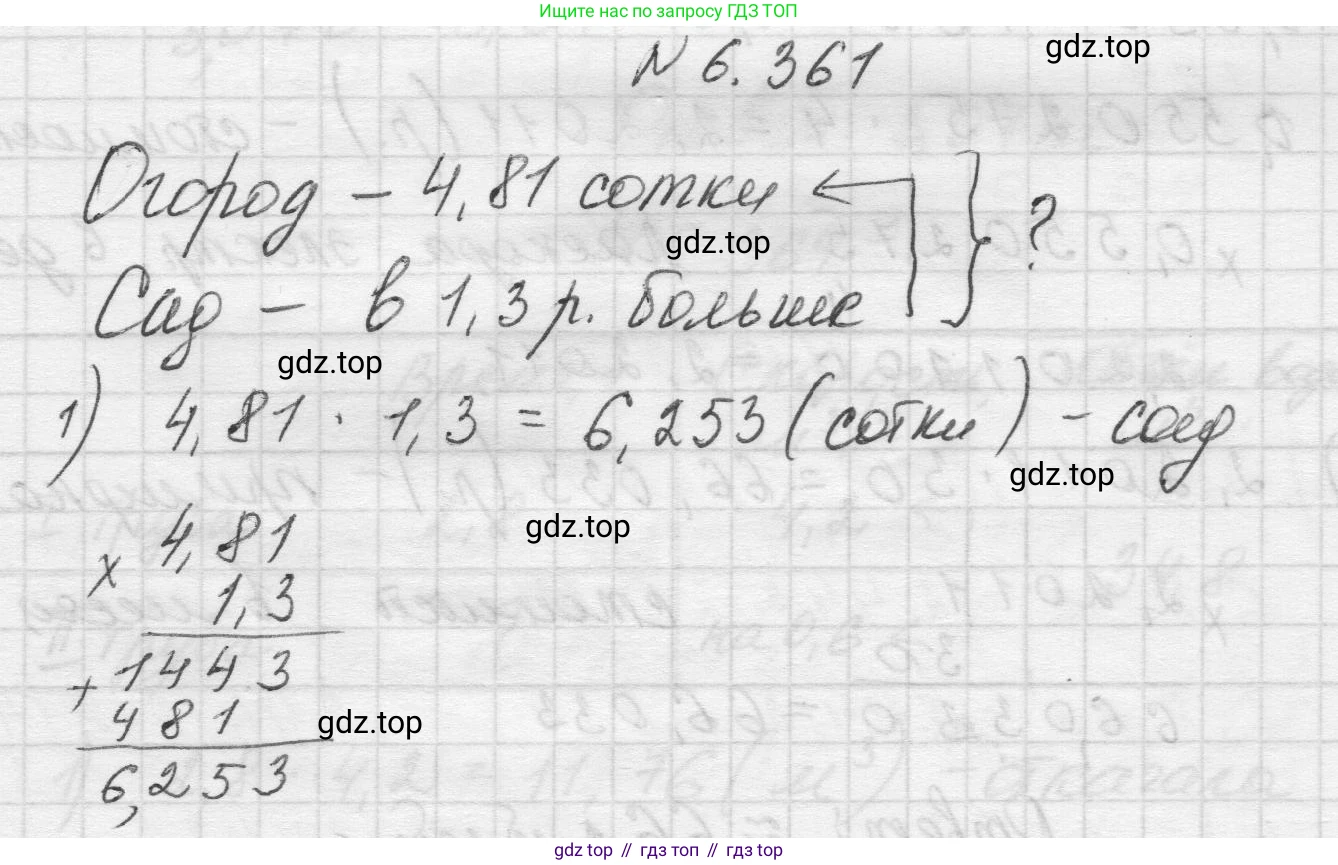 Ищите нас по запросу ГДЗ ТОП
N 6.361
gdz.top
Огород – 4,81 сотки
?
gdz.top
Сад – в 1,3 р. больше
gdz.top
1) 4,81 · 1,3 = 6,253 (сотки) – сад
gdz.top
gdz.top
× 4,81
1,3
+ 1443
481
gdz.top
6,253
gdz top // гдз топ // гдз top